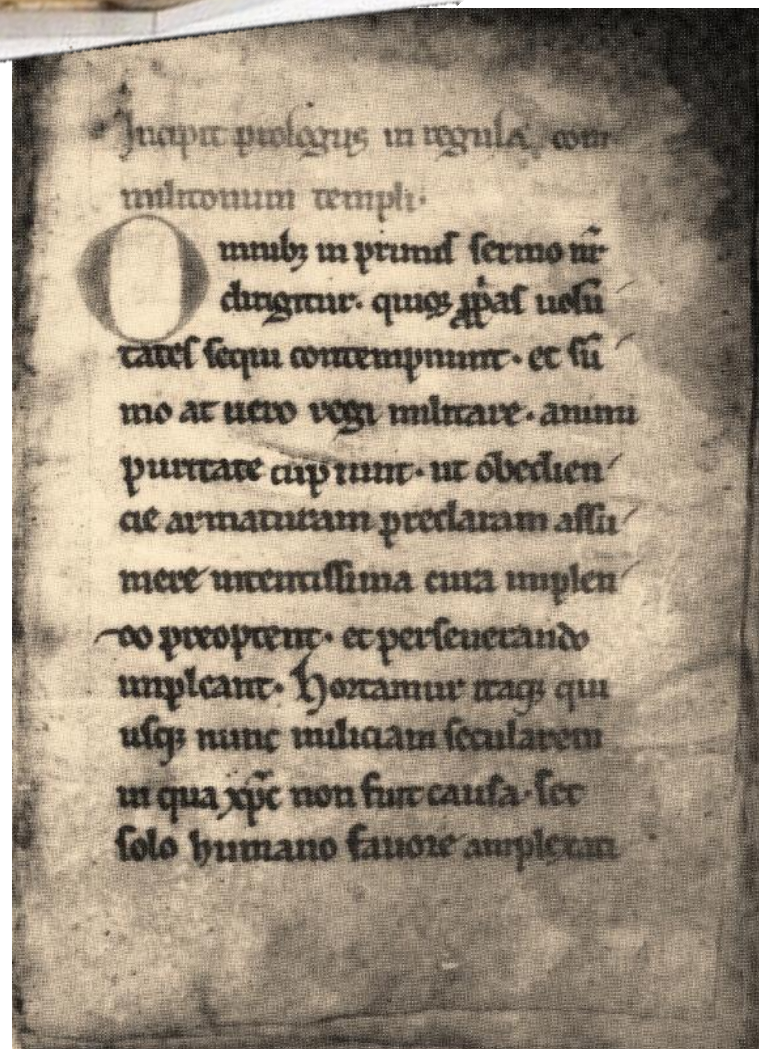 Incipit prologus in regula com
militonum templi·
Omnibꝫ in primis sermo nr̄
dirigitur· quiqꝫ ꝓp̱as uolū
tates sequi contempnunt· et sū
mo ac uero regi militare· animi
puritate cupiunt· ut obedien
cie armaturam preclaram assu
mere intentissima cura implen
do preoptent· et perseuerando
impleant· Hortamur itaqꝫ qui
usqꝫ nunc miliciam secularem
in qua xp̄c non fuit causa· set
solo humano fauore amplexati